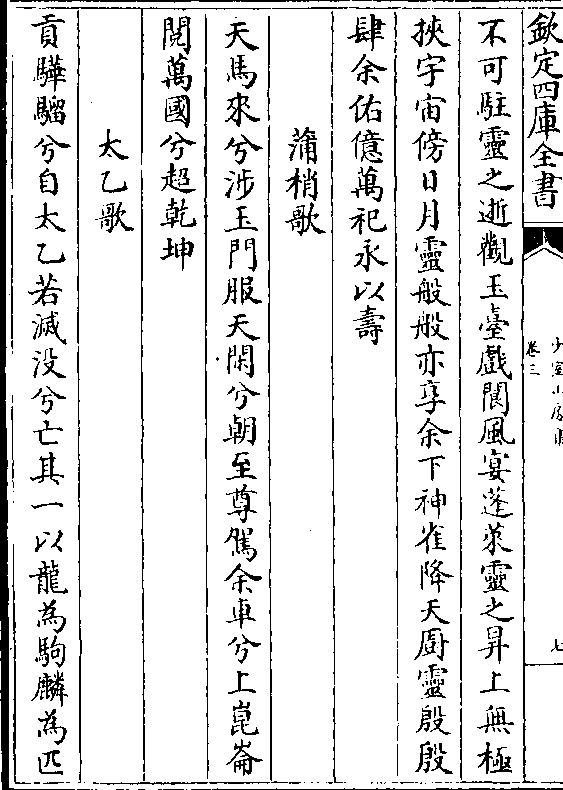 欽定四庫全書
卷三
七
不可駐靈之逝觀玉臺戲閬風宴蓬萊靈之昇上無極
挾宇宙傍日月靈般般亦享余下神雀降天厨靈殷殷
肆余佑億萬祀永以壽
蒲梢歌
天馬來兮涉玉門服天閑兮朝至尊駕余車兮上崑崙
閱萬國兮超乾坤
太乙歌
貢驊騮兮自太乙若滅没兮亡其一以龍為駒麟為匹